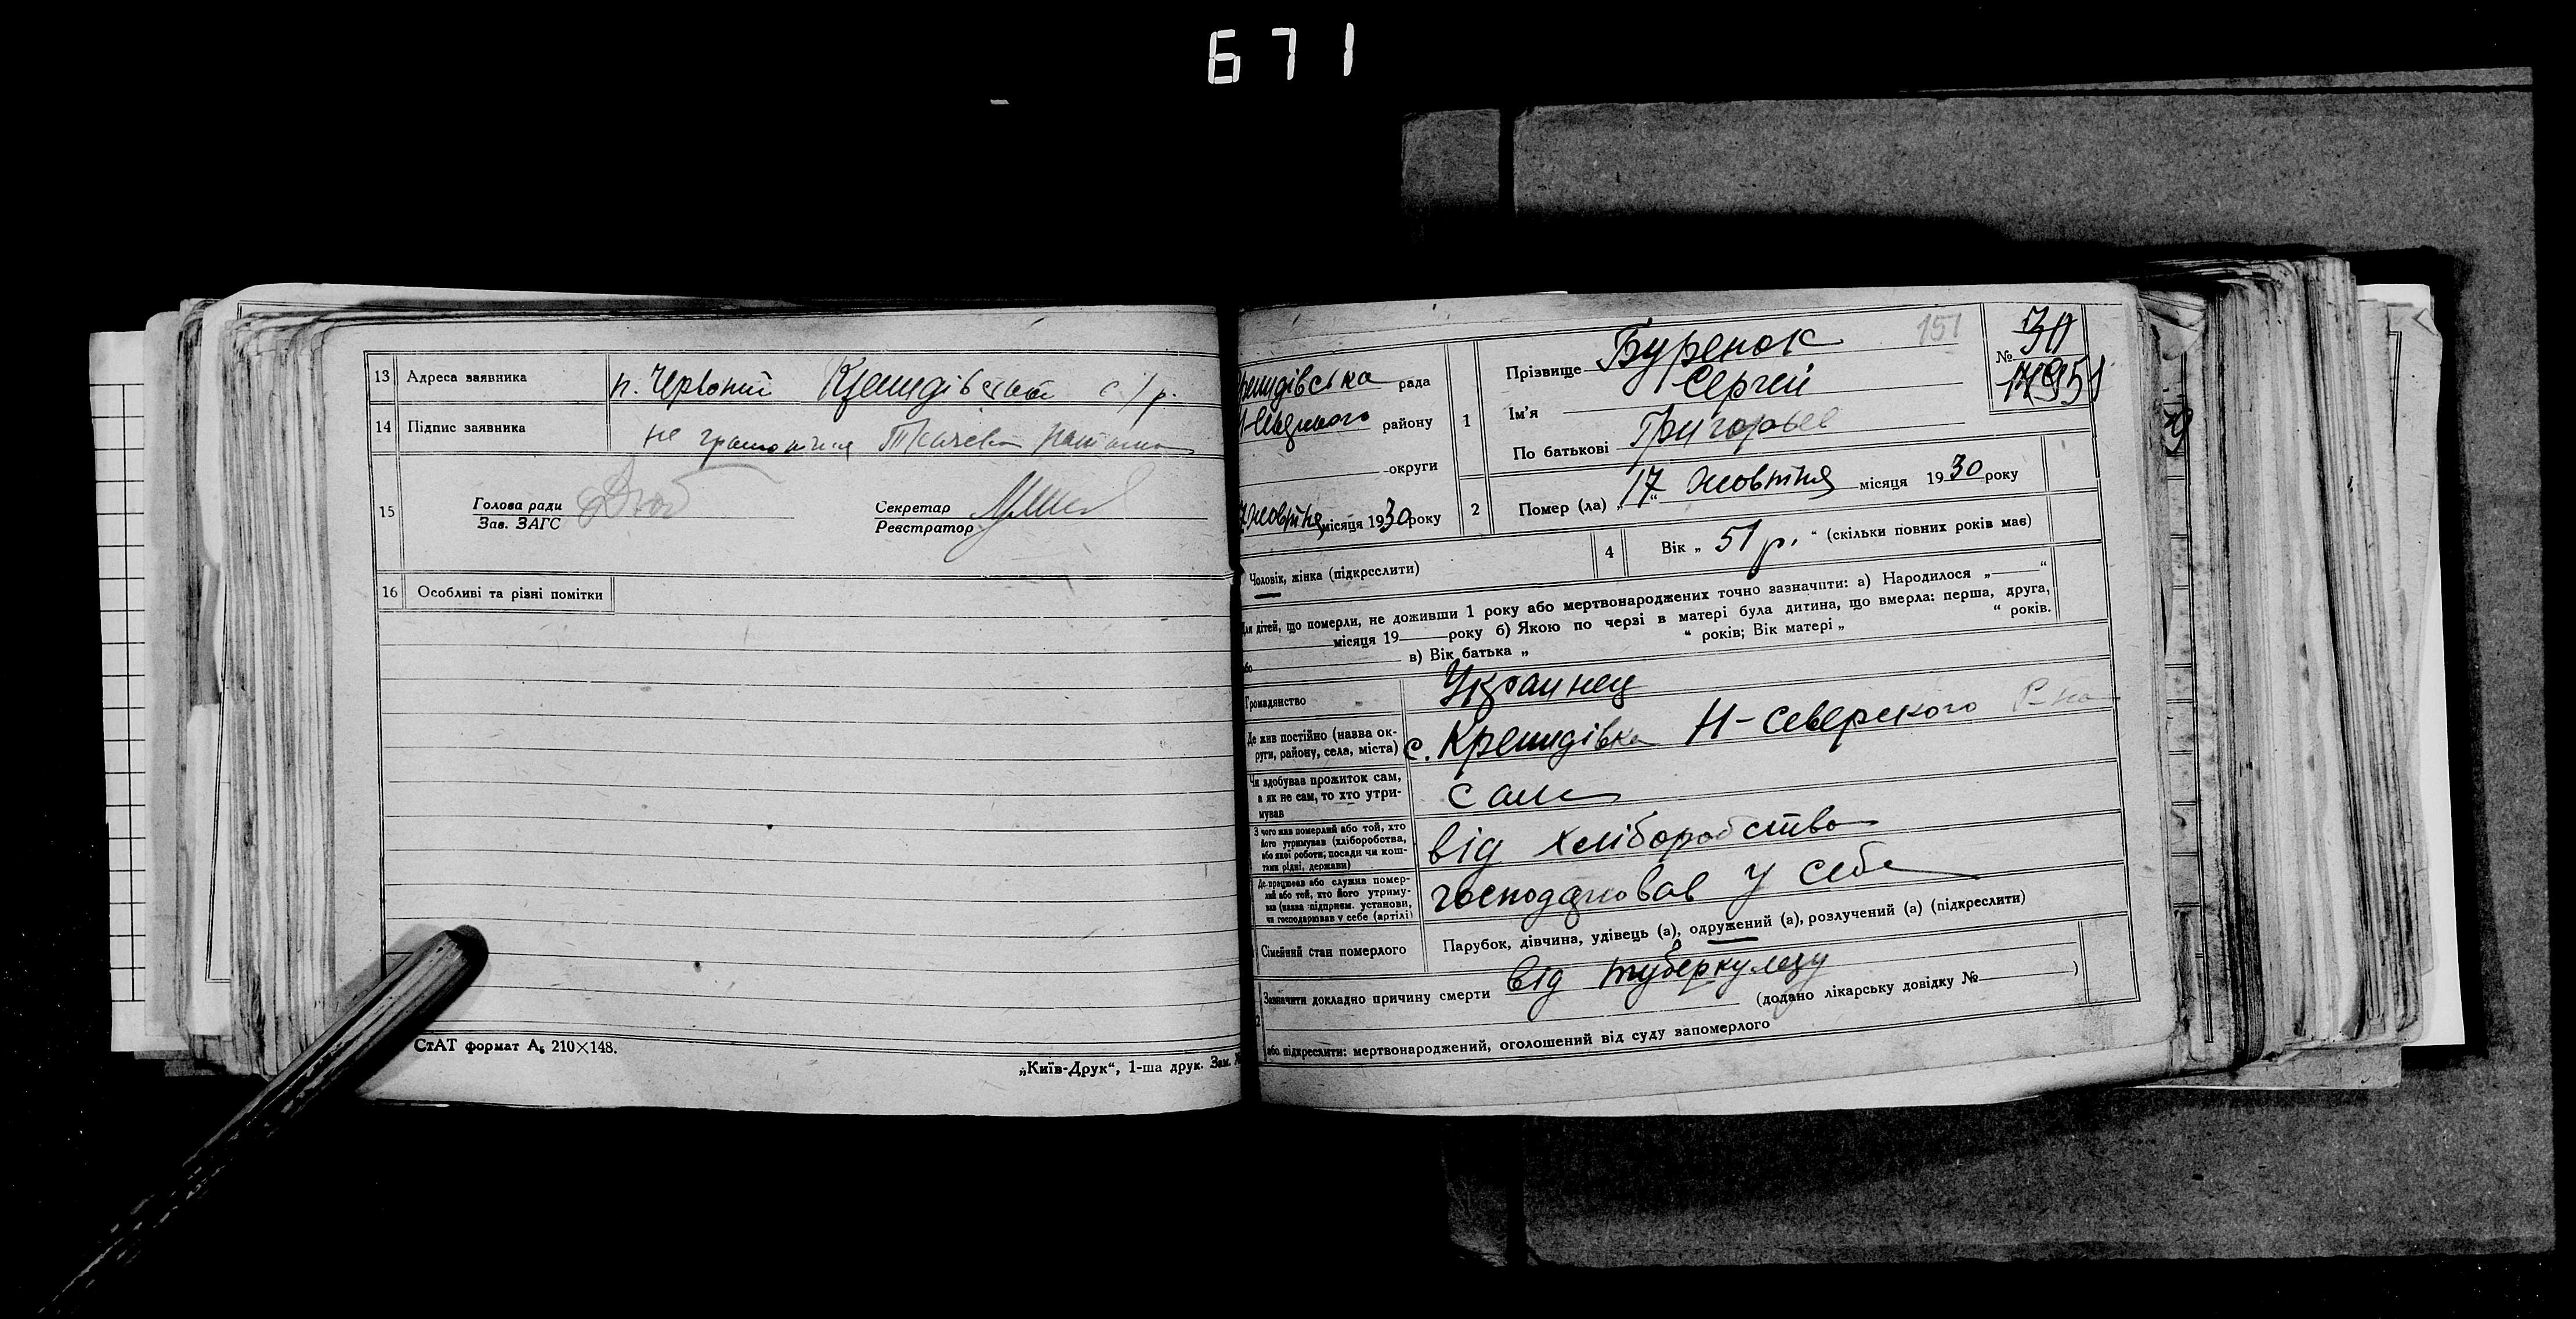 671
13 Адреса заявника п. Червоний с/р.
14 Підпис заявника не
15 Голова ради
Зав. ЗАГС
Секретар
Реєстратор
16 Особливі та різні помітки
СтАТ формат А₅ 210×148.
„Київ-Друк“, 1-ша друк. Зам.
рада
району
округи
жовтня місяця 1930 року
1 Прізвище Буренок
Ім'я Сергей
По батькові Григорьев
151
№ 30
2 Помер (ла) „17“ жовтня місяця 1930 року
Чоловік, жінка (підкреслити)
4 Вік „ 51 р. “ (скільки повних років має)
Для дітей, що померли, не доживши 1 року або мертвонароджених точно зазначити: а) Народилося „ “
місяця 19 року б) Якою по черзі в матері була дитина, що вмерла: перша, друга,
або в) Вік батька „ “ років; Вік матері „ “ років.
Громадянство Украинец
Де жив постійно (назва ок-
руги, району, села, міста) с. Кренидівка Н-Северского Р-на
Чи здобував прожиток сам,
а як не сам, то хто утри-
мував
сам
З чого жив померлий або той, хто
його утримував (хліборобства,
або якої роботи, посади чи кош-
тами рідні, держави)
від хліборобства
Де працював або служив помер-
лий або той, хто його утриму-
вав (назва підприєм. установи,
чи господарював у себе (артілі)
господарював у себе
Сімейний стан померлого Парубок, дівчина, удівець (а), одружений (а), розлучений (а) (підкреслити)
Зазначити докладно причину смерти від туберкулезу
(додано лікарську довідку № )
або підкреслити: мертвонароджений, оголошений від суду запомерлого